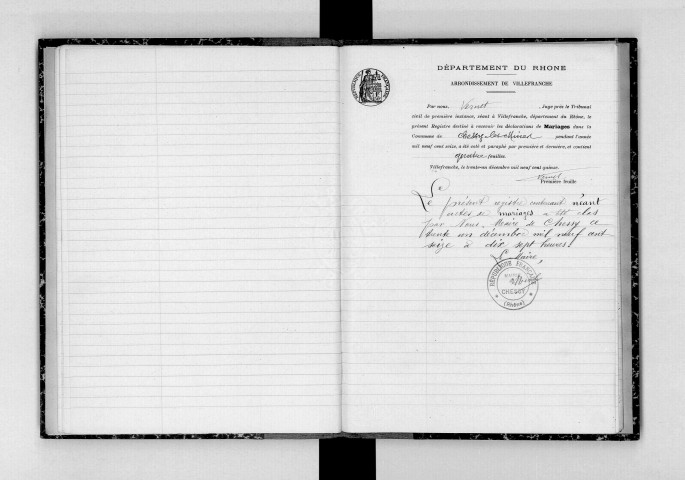 DÉPARTEMENT DU RHONE
ARRONDISSEMENT DE VILLEFRANCHE
RÉPUBLIQUE FRANÇAISE
Par nous, Vernet, Juge près le Tribunal
civil de première instance, séant à Villefranche, département du Rhône, le
présent Registre destiné à recevoir les déclarations de Mariages dans la
Commune de Chessy-les-Mines pendant l'année
mil neuf cent seize, a été coté et paraphé par première et dernière, et contient
quatre feuilles.
Villefranche, le trente-un décembre mil neuf cent quinze.
Vernet
Première feuille
Le
Le présent registre contenant néant
actes de mariages a été clos
par Nous, Maire de Chessy ce
trente un décembre mil neuf cent
seize à dix sept heures.
Le Maire,
RÉPUBLIQUE FRANÇAISE
CHESSY
(Rhône)